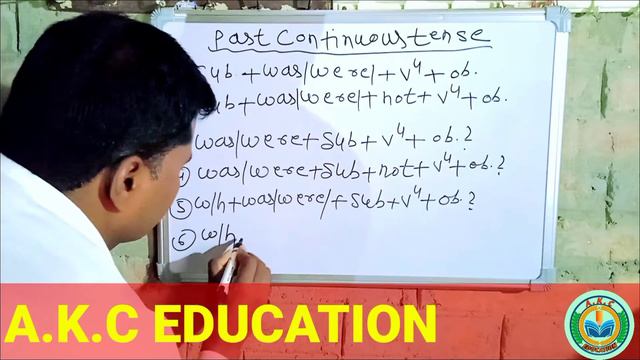 Past Continuous tense
Sub + was/were/ + v4 + ob.
Sub + was/were/ + not + v4 + ob.
was/were + Sub + v4 + ob.?
was/were + Sub + not + v4 + ob.?
5 w/h + was/were/ + Sub + v4 + ob.?
6 w/h
A.K.C EDUCATION
A.K.C
EDUCATION